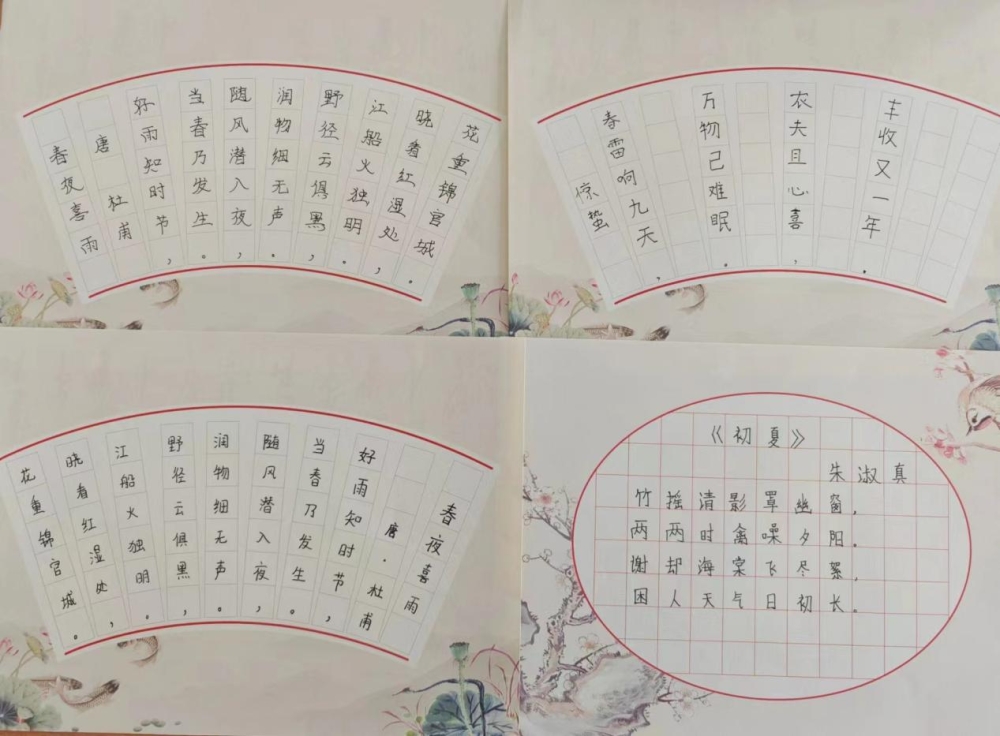 春夜喜雨
唐 杜甫
好雨知时节，
当春乃发生。
随风潜入夜，
润物细无声。
野径云俱黑，
江船火独明。
晓看红湿处，
花重锦官城。
惊蛰
春雷响九天，
万物己难眠。
农夫且心喜，
丰收又一年。
春夜喜雨
唐·杜甫
好雨知时节，
当春乃发生。
随风潜入夜，
润物细无声。
野径云俱黑，
江船火独明。
晓看红湿处，
花重锦官城。
《初夏》
朱淑真
竹摇清影罩幽窗，
两两时禽噪夕阳。
谢却海棠飞尽絮，
困人天气日初长。